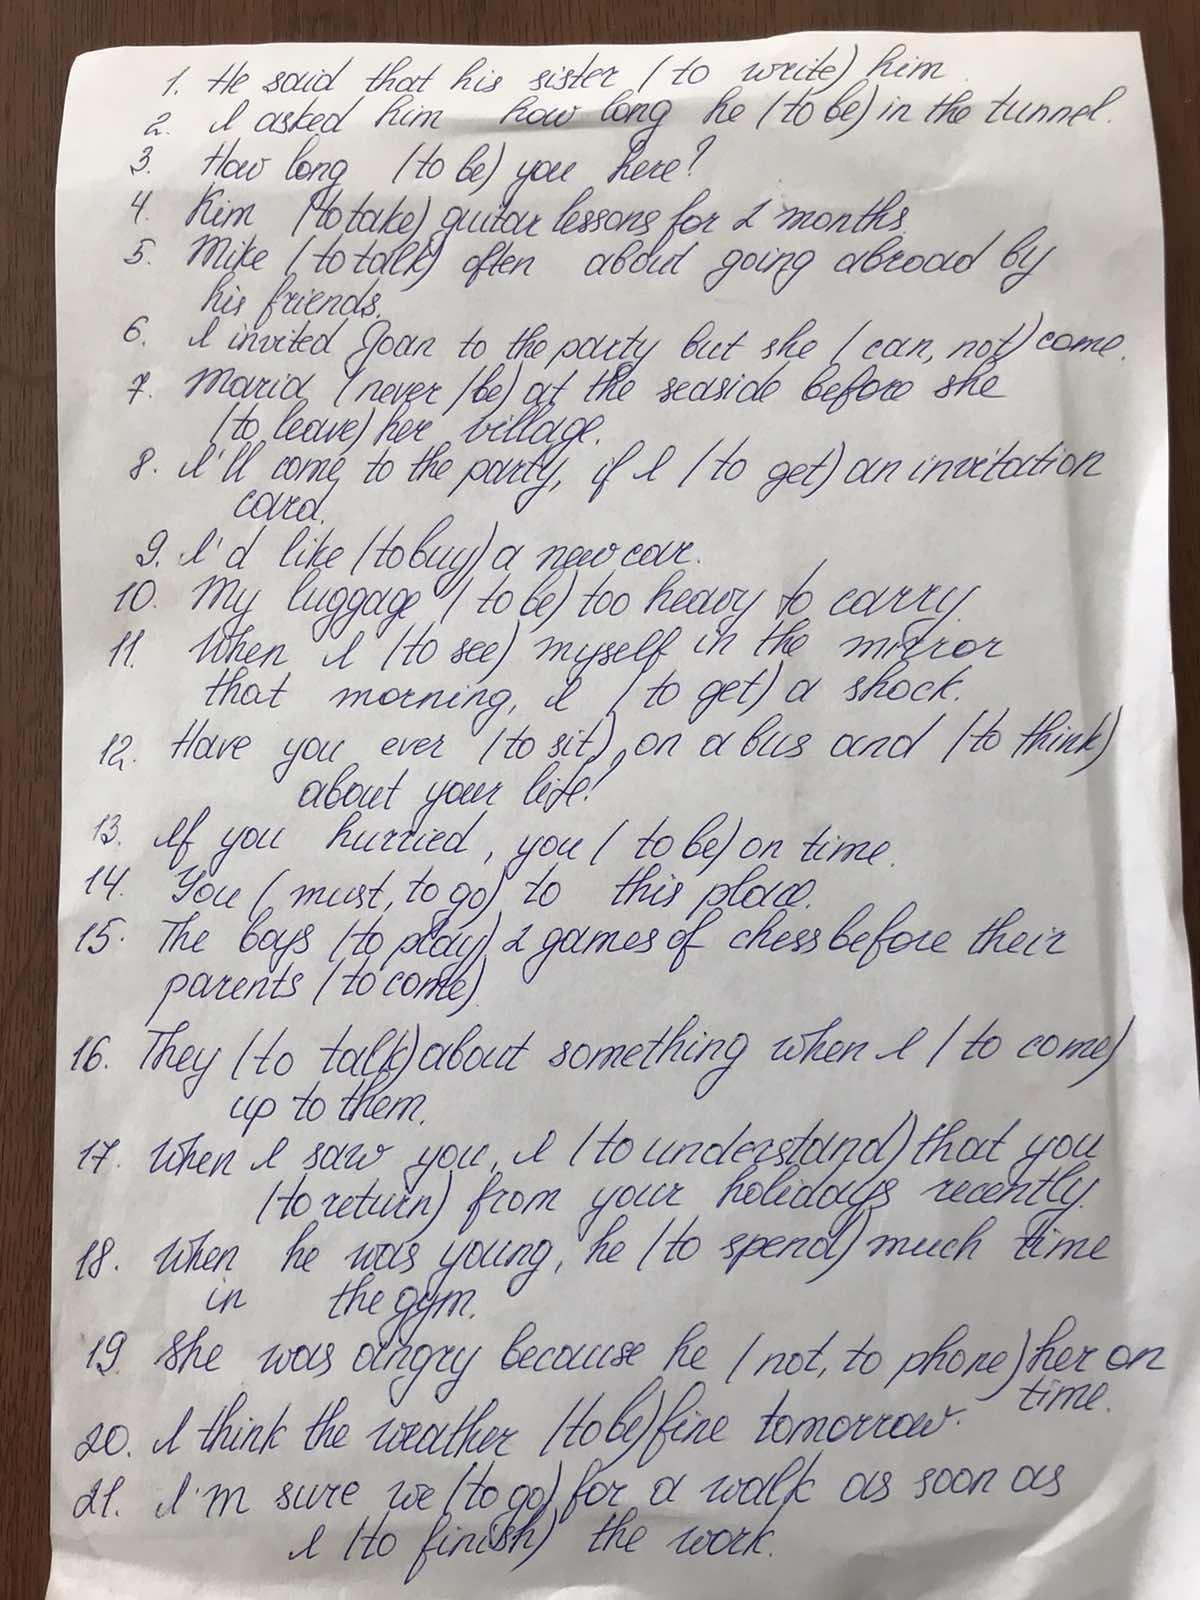 1. He said that his sister (to write) him
2. I asked him how long he (to be) in the tunnel.
3. How long (to be) you here?
4. Kim (to take) guitar lessons for 2 months.
5. Mike (to talk) often about going abroad by
his friends.
6. I invited Joan to the party but she (can, not) come.
7. Maria (never/be) at the seaside before she
(to leave) her village.
8. I'll come to the party, if I (to get) an invitation
card.
9. I'd like (to buy) a new car.
10. My luggage (to be) too heavy to carry
11. When I (to see) myself in the mirror
that morning, I (to get) a shock.
12. Have you ever (to sit) on a bus and (to think)
about your life?
13. If you hurried, you (to be) on time.
14. You (must, to go) to this place.
15. The boys (to play) 2 games of chess before their
parents (to come)
16. They (to talk) about something when I (to come)
up to them.
17. When I saw you, I (to understand) that you
(to return) from your holidays recently.
18. When he was young, he (to spend) much time
in the gym.
19. She was angry because he (not, to phone) her on
time.
20. I think the weather (to be) fine tomorrow.
21. I'm sure we (to go) for a walk as soon as
I (to finish) the work.